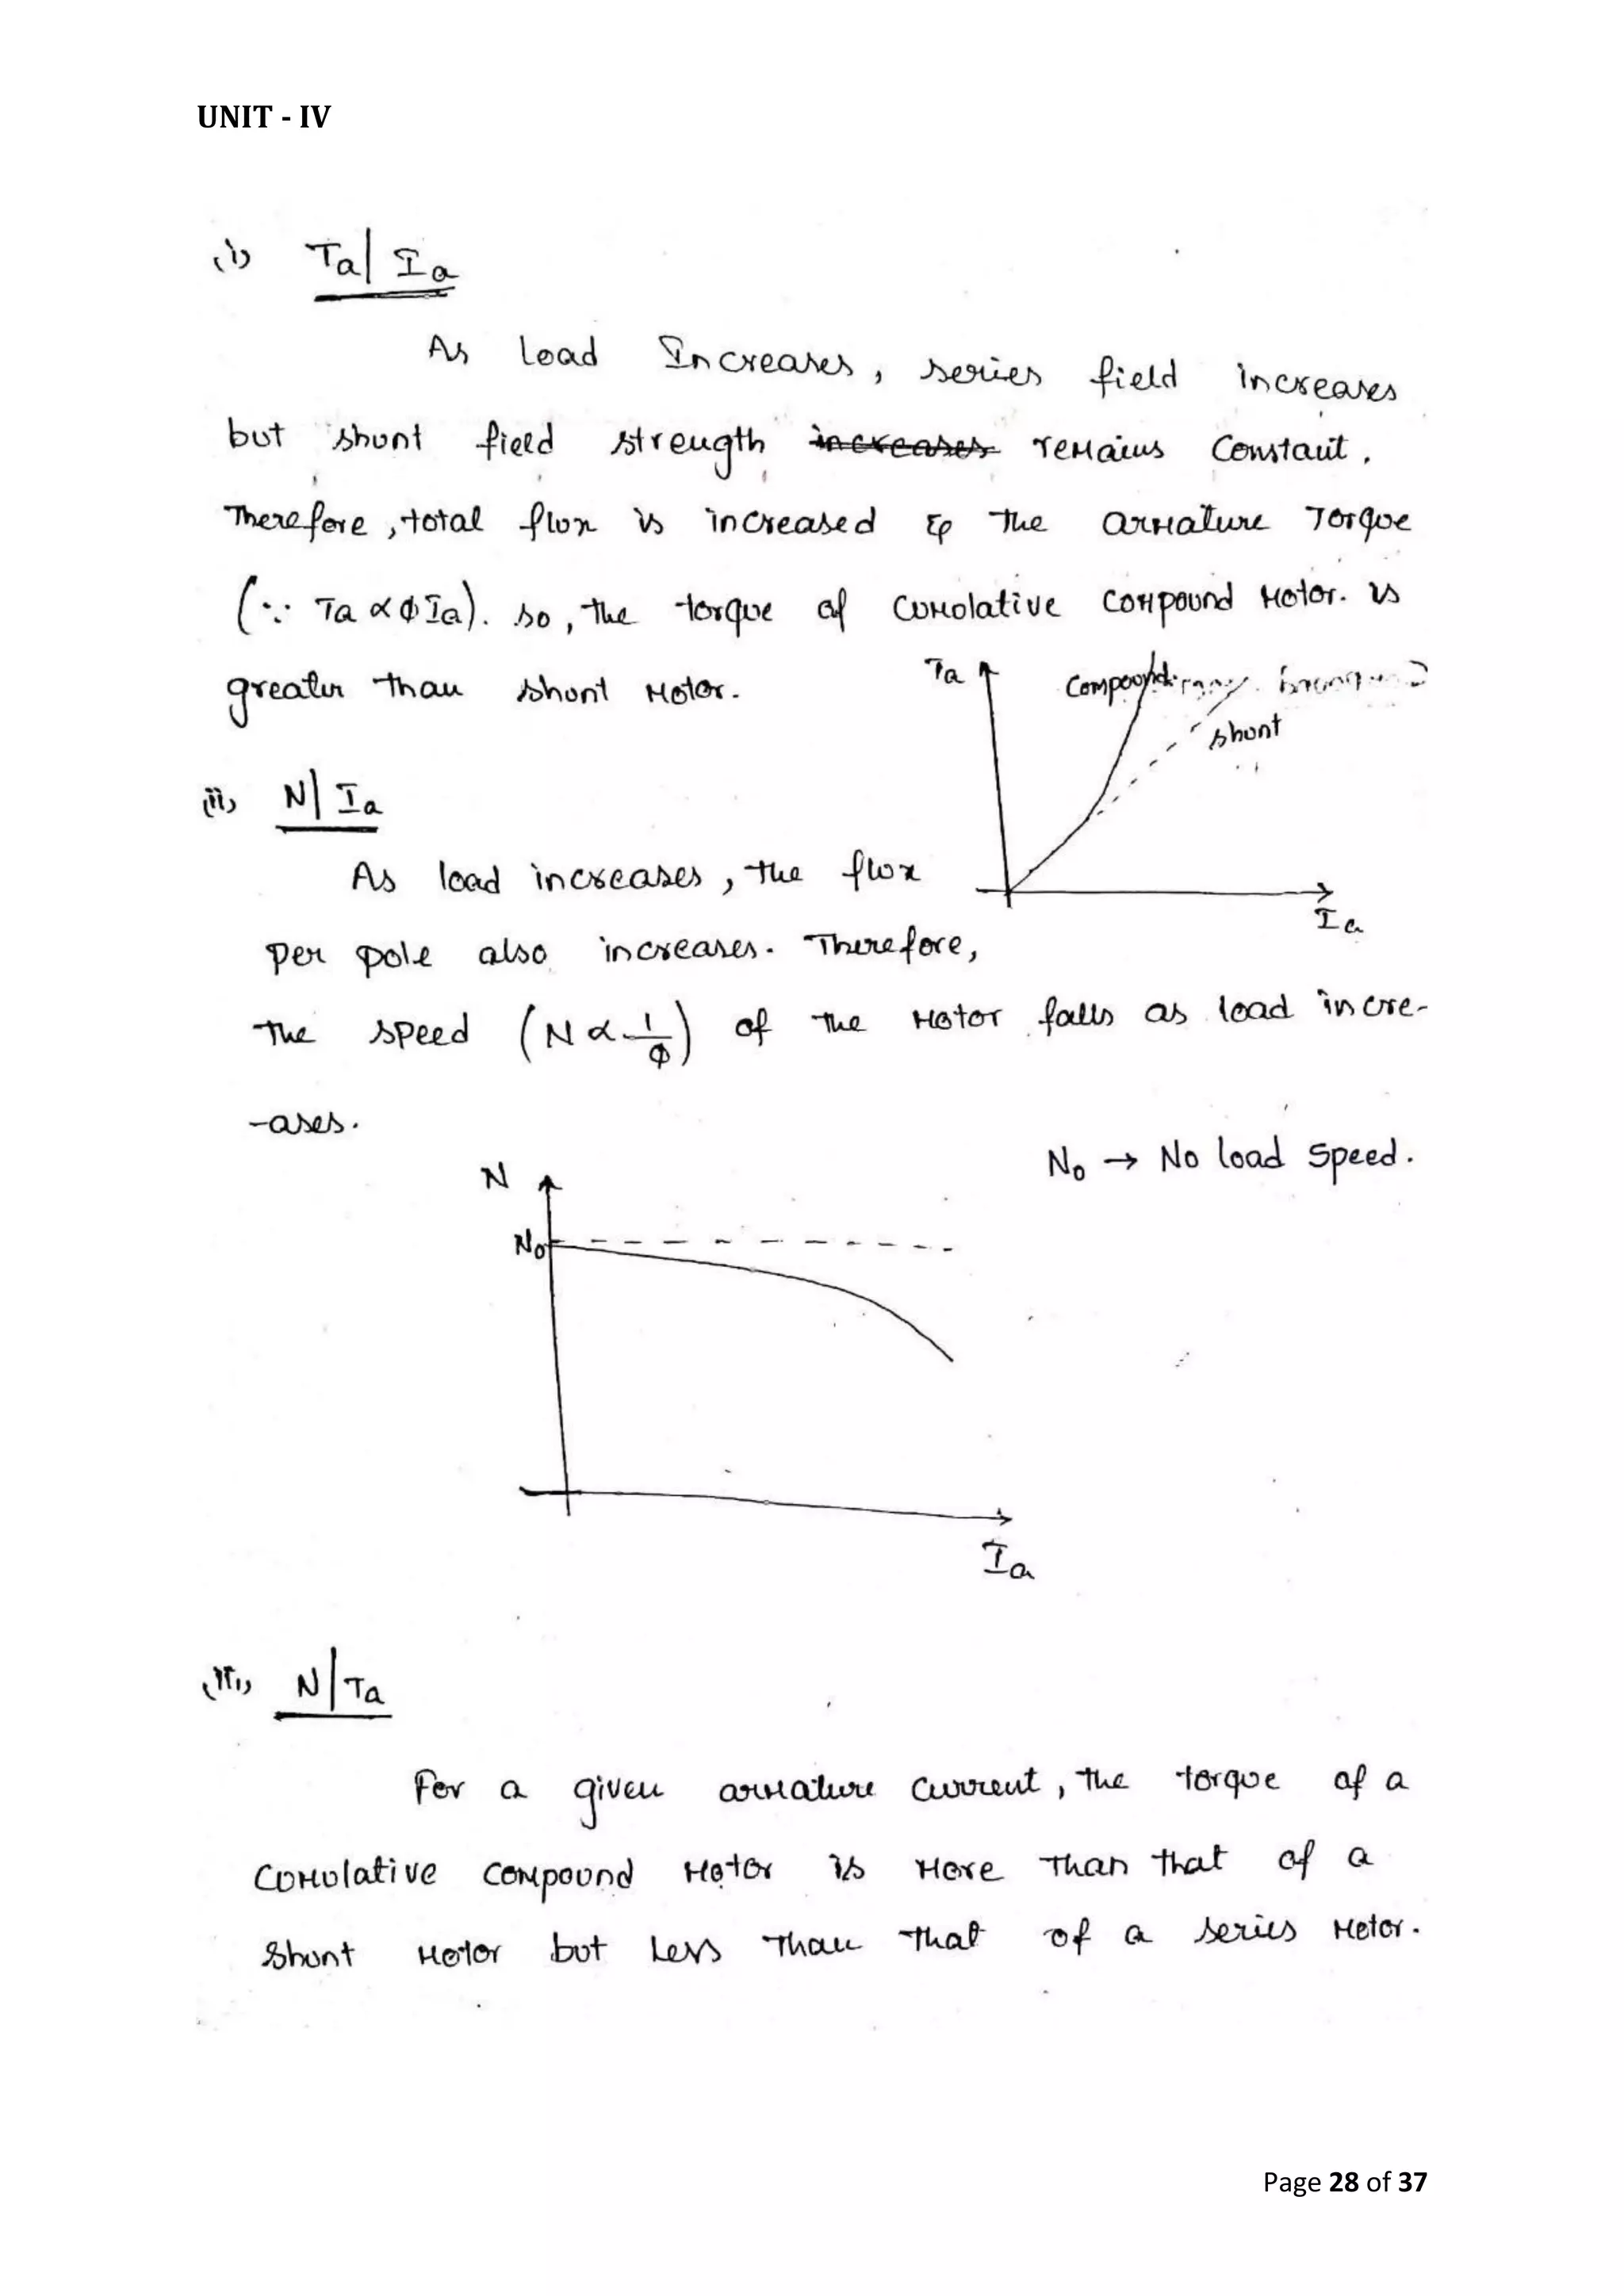 UNIT - IV
(i) Ta | Ia
As load Increases, series field increases
but shunt field strength increases remains Constant.
Therefore, total flux is increased & the armature Torque
(∵ Ta ∝ ϕ Ia). so, the torque of cumulative compound Motor. is
greater than shunt Motor.
Ta
Compound
shunt
Ia
(ii) N | Ia
As load increases, the flux
per pole also increases. Therefore,
The speed (N ∝ 1/ϕ) of the Motor falls as load incre-
-ases.
N0 → No load Speed.
N
N0
Ia
(iii) N | Ta
For a given armature current, the torque of a
cumulative compound Motor is More than that of a
shunt Motor but Less than that of a series Motor.
Page 28 of 37